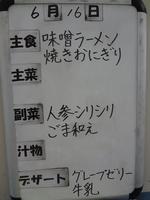 6月16日
主食 味噌ラーメン
焼きおにぎり
主菜
副菜 人参シリシリ
ごま和え
汁物
デザート グレープゼリー
牛乳